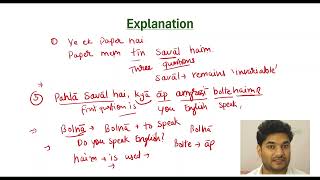 Explanation
① Ye ek Paper hai
Paper mem tin Savāl haim.
Three questions
Savāl → remains 'invariable'
⑤ Pahlā Savāl hai, kyā āp angrezi bolte haim?
First question is you English speak,
⇒ Bolnā → Bolnā + to speak Bolnā
Do you speak English? Bolte → āp
haim → is used →